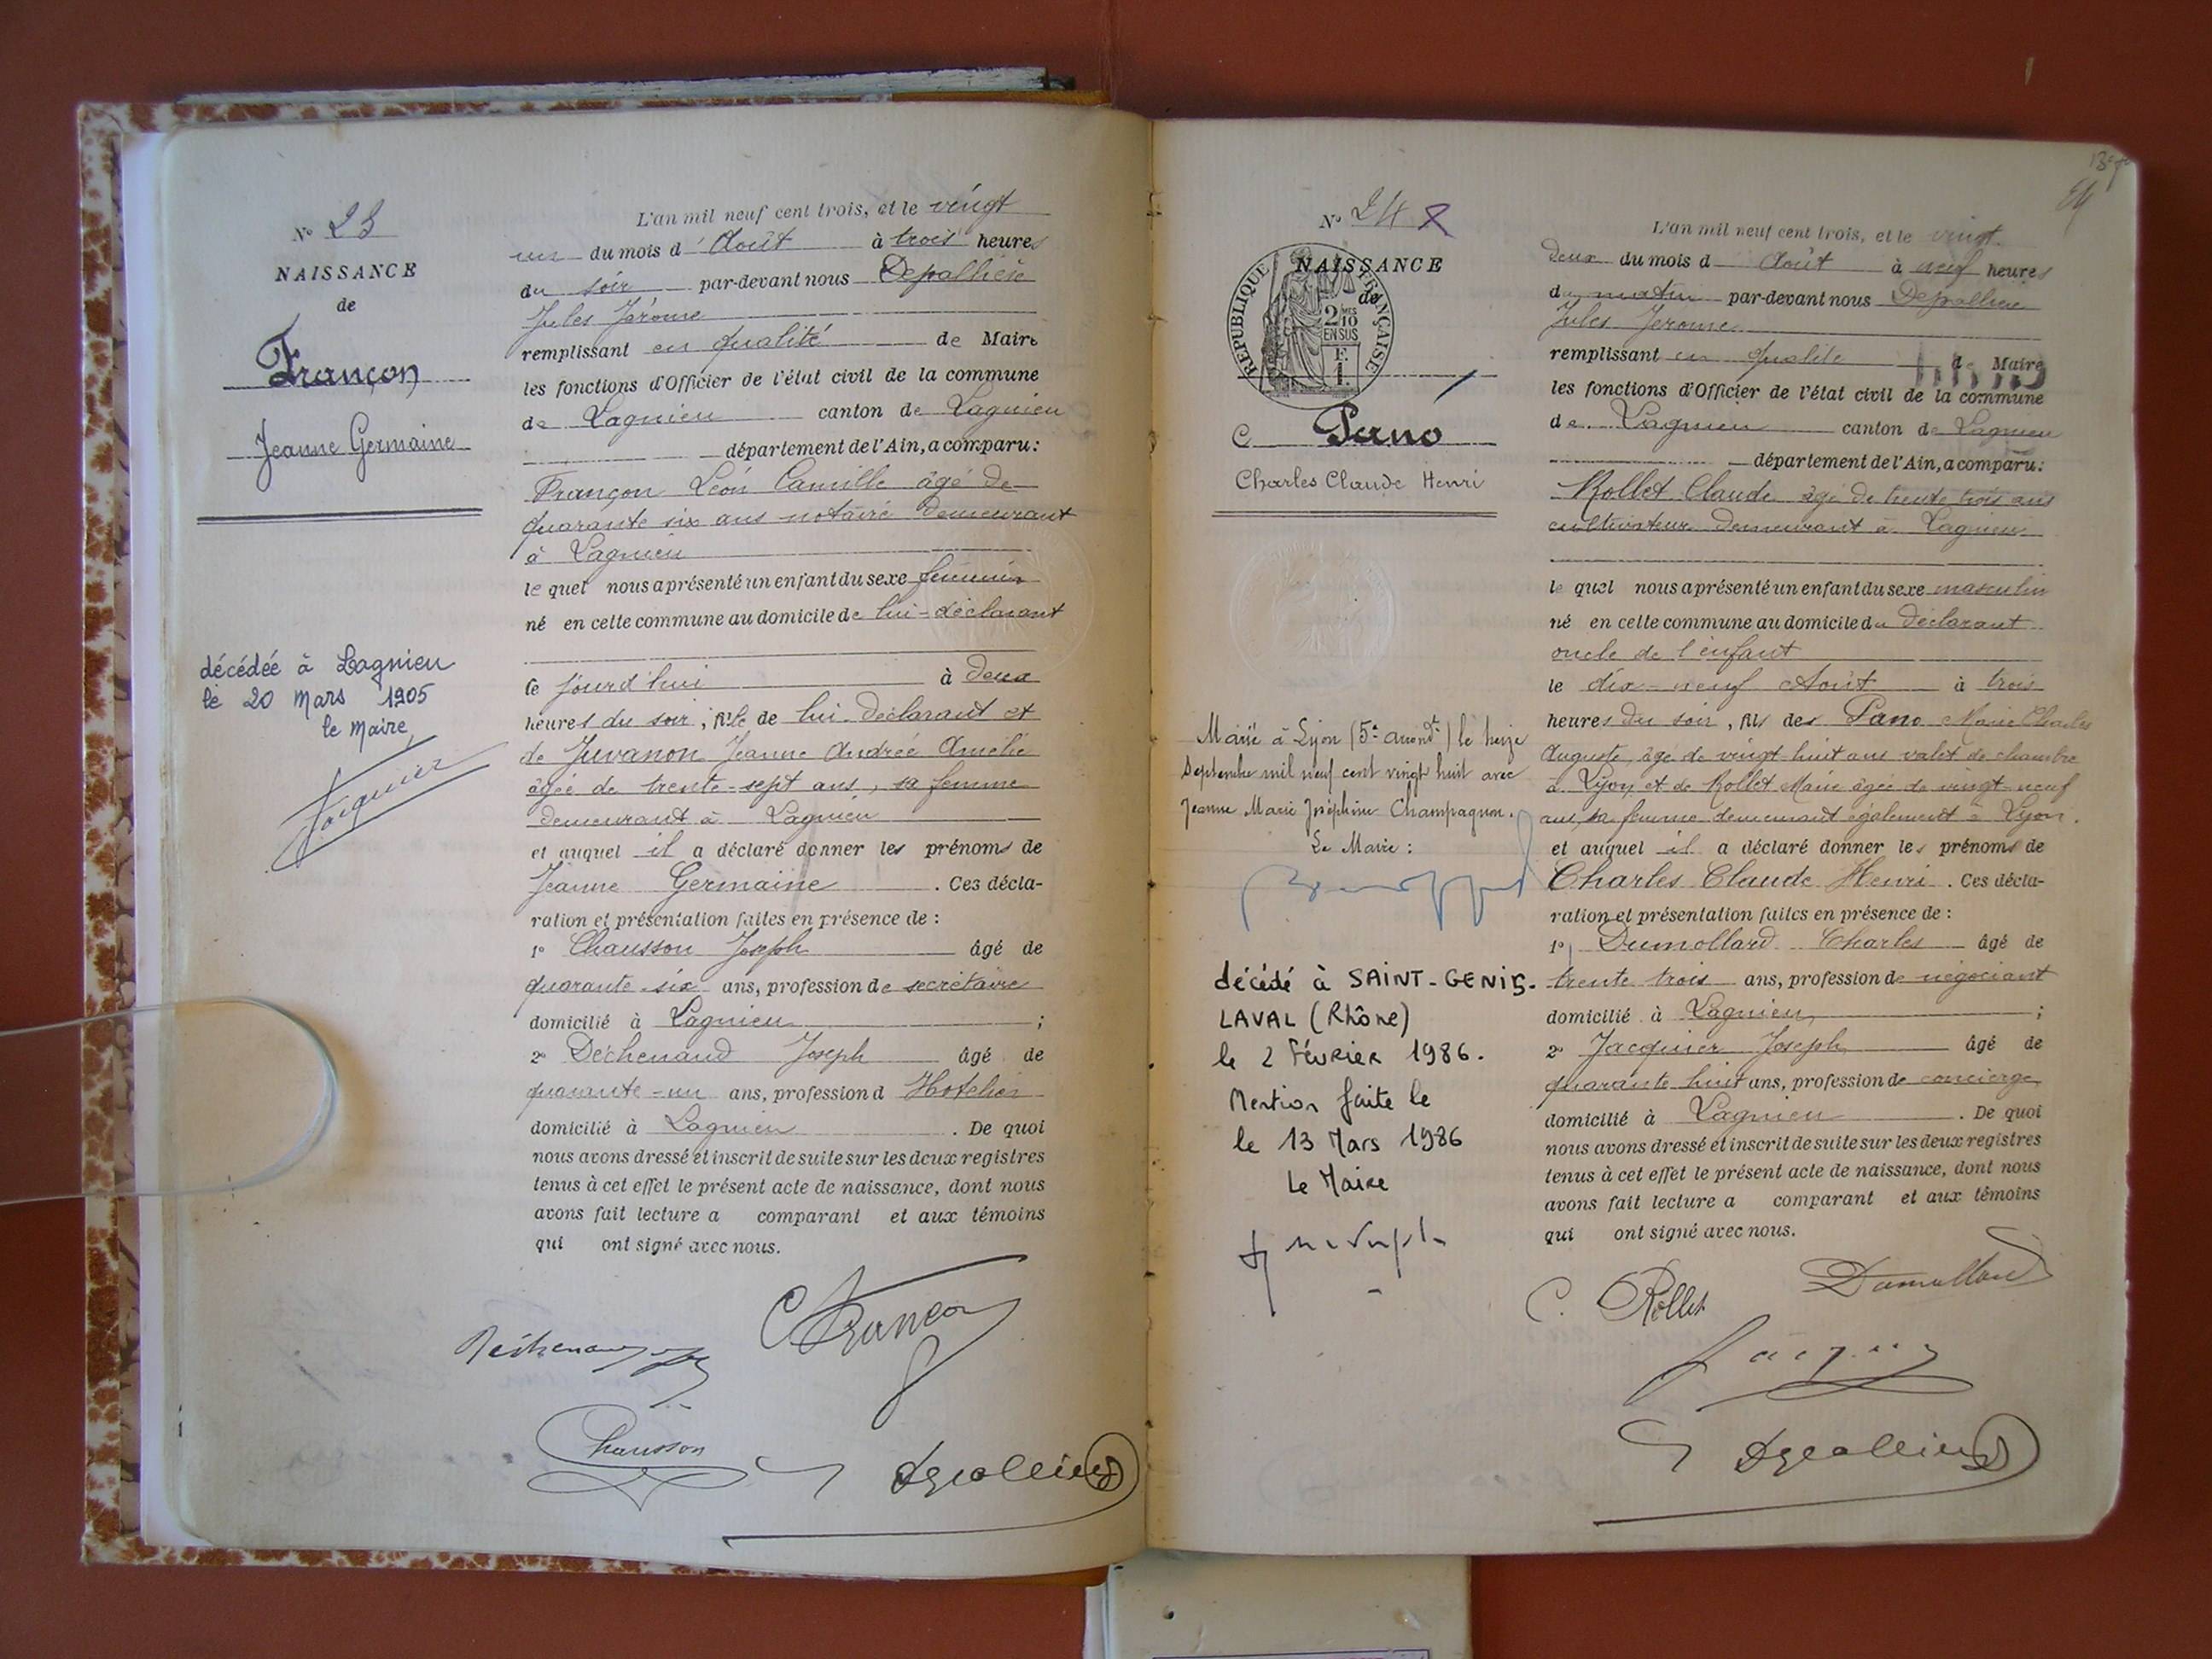 N° 23
NAISSANCE
de
Françon
Jeanne Germaine
décédée à Lagnieu
le 20 Mars 1905
le Maire,
L'an mil neuf cent trois, et le vingt
un du mois d'Août à trois heures
du soir par-devant nous Depallière
Jules Jérôme
remplissant en qualité de Maire
les fonctions d'Officier de l'état civil de la commune
de Lagnieu canton de Lagnieu
département de l'Ain, a comparu:
Françon Léon Camille âgé de
quarante six ans notaire demeurant
à Lagnieu
le quel nous a présenté un enfant du sexe féminin
né en cette commune au domicile de lui-déclarant
ce jourd'hui à deux
heures du soir, fille de lui déclarant et
de Juvanon Jeanne Andrée Amélie
âgée de trente-sept ans, sa femme
demeurant à Lagnieu
et auquel il a déclaré donner les prénoms de
Jeanne Germaine. Ces décla-
ration et présentation faites en présence de :
1° Chausson Joseph âgé de
quarante-six ans, profession de secrétaire
domicilié à Lagnieu ;
2° Déchenaud Joseph âgé de
quarante-un ans, profession d Hotelier
domicilié à Lagnieu. De quoi
nous avons dressé et inscrit de suite sur les deux registres
tenus à cet effet le présent acte de naissance, dont nous
avons fait lecture a comparant et aux témoins
qui ont signé avec nous.
C Françon
Chausson
N° 24
NAISSANCE
de
RÉPUBLIQUE FRANÇAISE
2 MES
10
EN SUS
F.
1.
C Pano
Charles Claude Henri
Marié à Lyon (5e arrondt) le treize
Septembre mil neuf cent vingt huit avec
Jeanne Marie Joséphine Champagnon.
Le Maire :
décédé à SAINT-GENIS-
LAVAL (Rhône)
le 2 Février 1986.
Mention faite le
le 13 Mars 1986
Le Maire
L'an mil neuf cent trois, et le vingt
deux du mois d Août à neuf heures
du matin par-devant nous Depallière
Jules Jerome
remplissant en qualité de Maire
les fonctions d'Officier de l'état civil de la commune
de Lagnieu canton de Lagnieu
département de l'Ain, a comparu:
Rollet Claude âgé de trente trois ans
cultivateur demeurant à Lagnieu
le quel nous a présenté un enfant du sexe masculin
né en cette commune au domicile du déclarant
oncle de l'enfant
le dix-neuf Août à trois
heures du soir, fils de Pano Marie Charles
Auguste, âgé de vingt-huit ans valet de chambre
à Lyon et de Rollet Marie âgée de vingt-neuf
ans, sa femme demeurant également à Lyon.
et auquel il a déclaré donner les prénoms de
Charles Claude Henri. Ces décla-
ration et présentation faites en présence de :
1° Dumollard Charles âgé de
trente trois ans, profession de négociant
domicilié à Lagnieu ;
2° Jacquier Joseph âgé de
quarante huit ans, profession de concierge
domicilié à Lagnieu. De quoi
nous avons dressé et inscrit de suite sur les deux registres
tenus à cet effet le présent acte de naissance, dont nous
avons fait lecture a comparant et aux témoins
qui ont signé avec nous.
C. Rollet
Dumollard